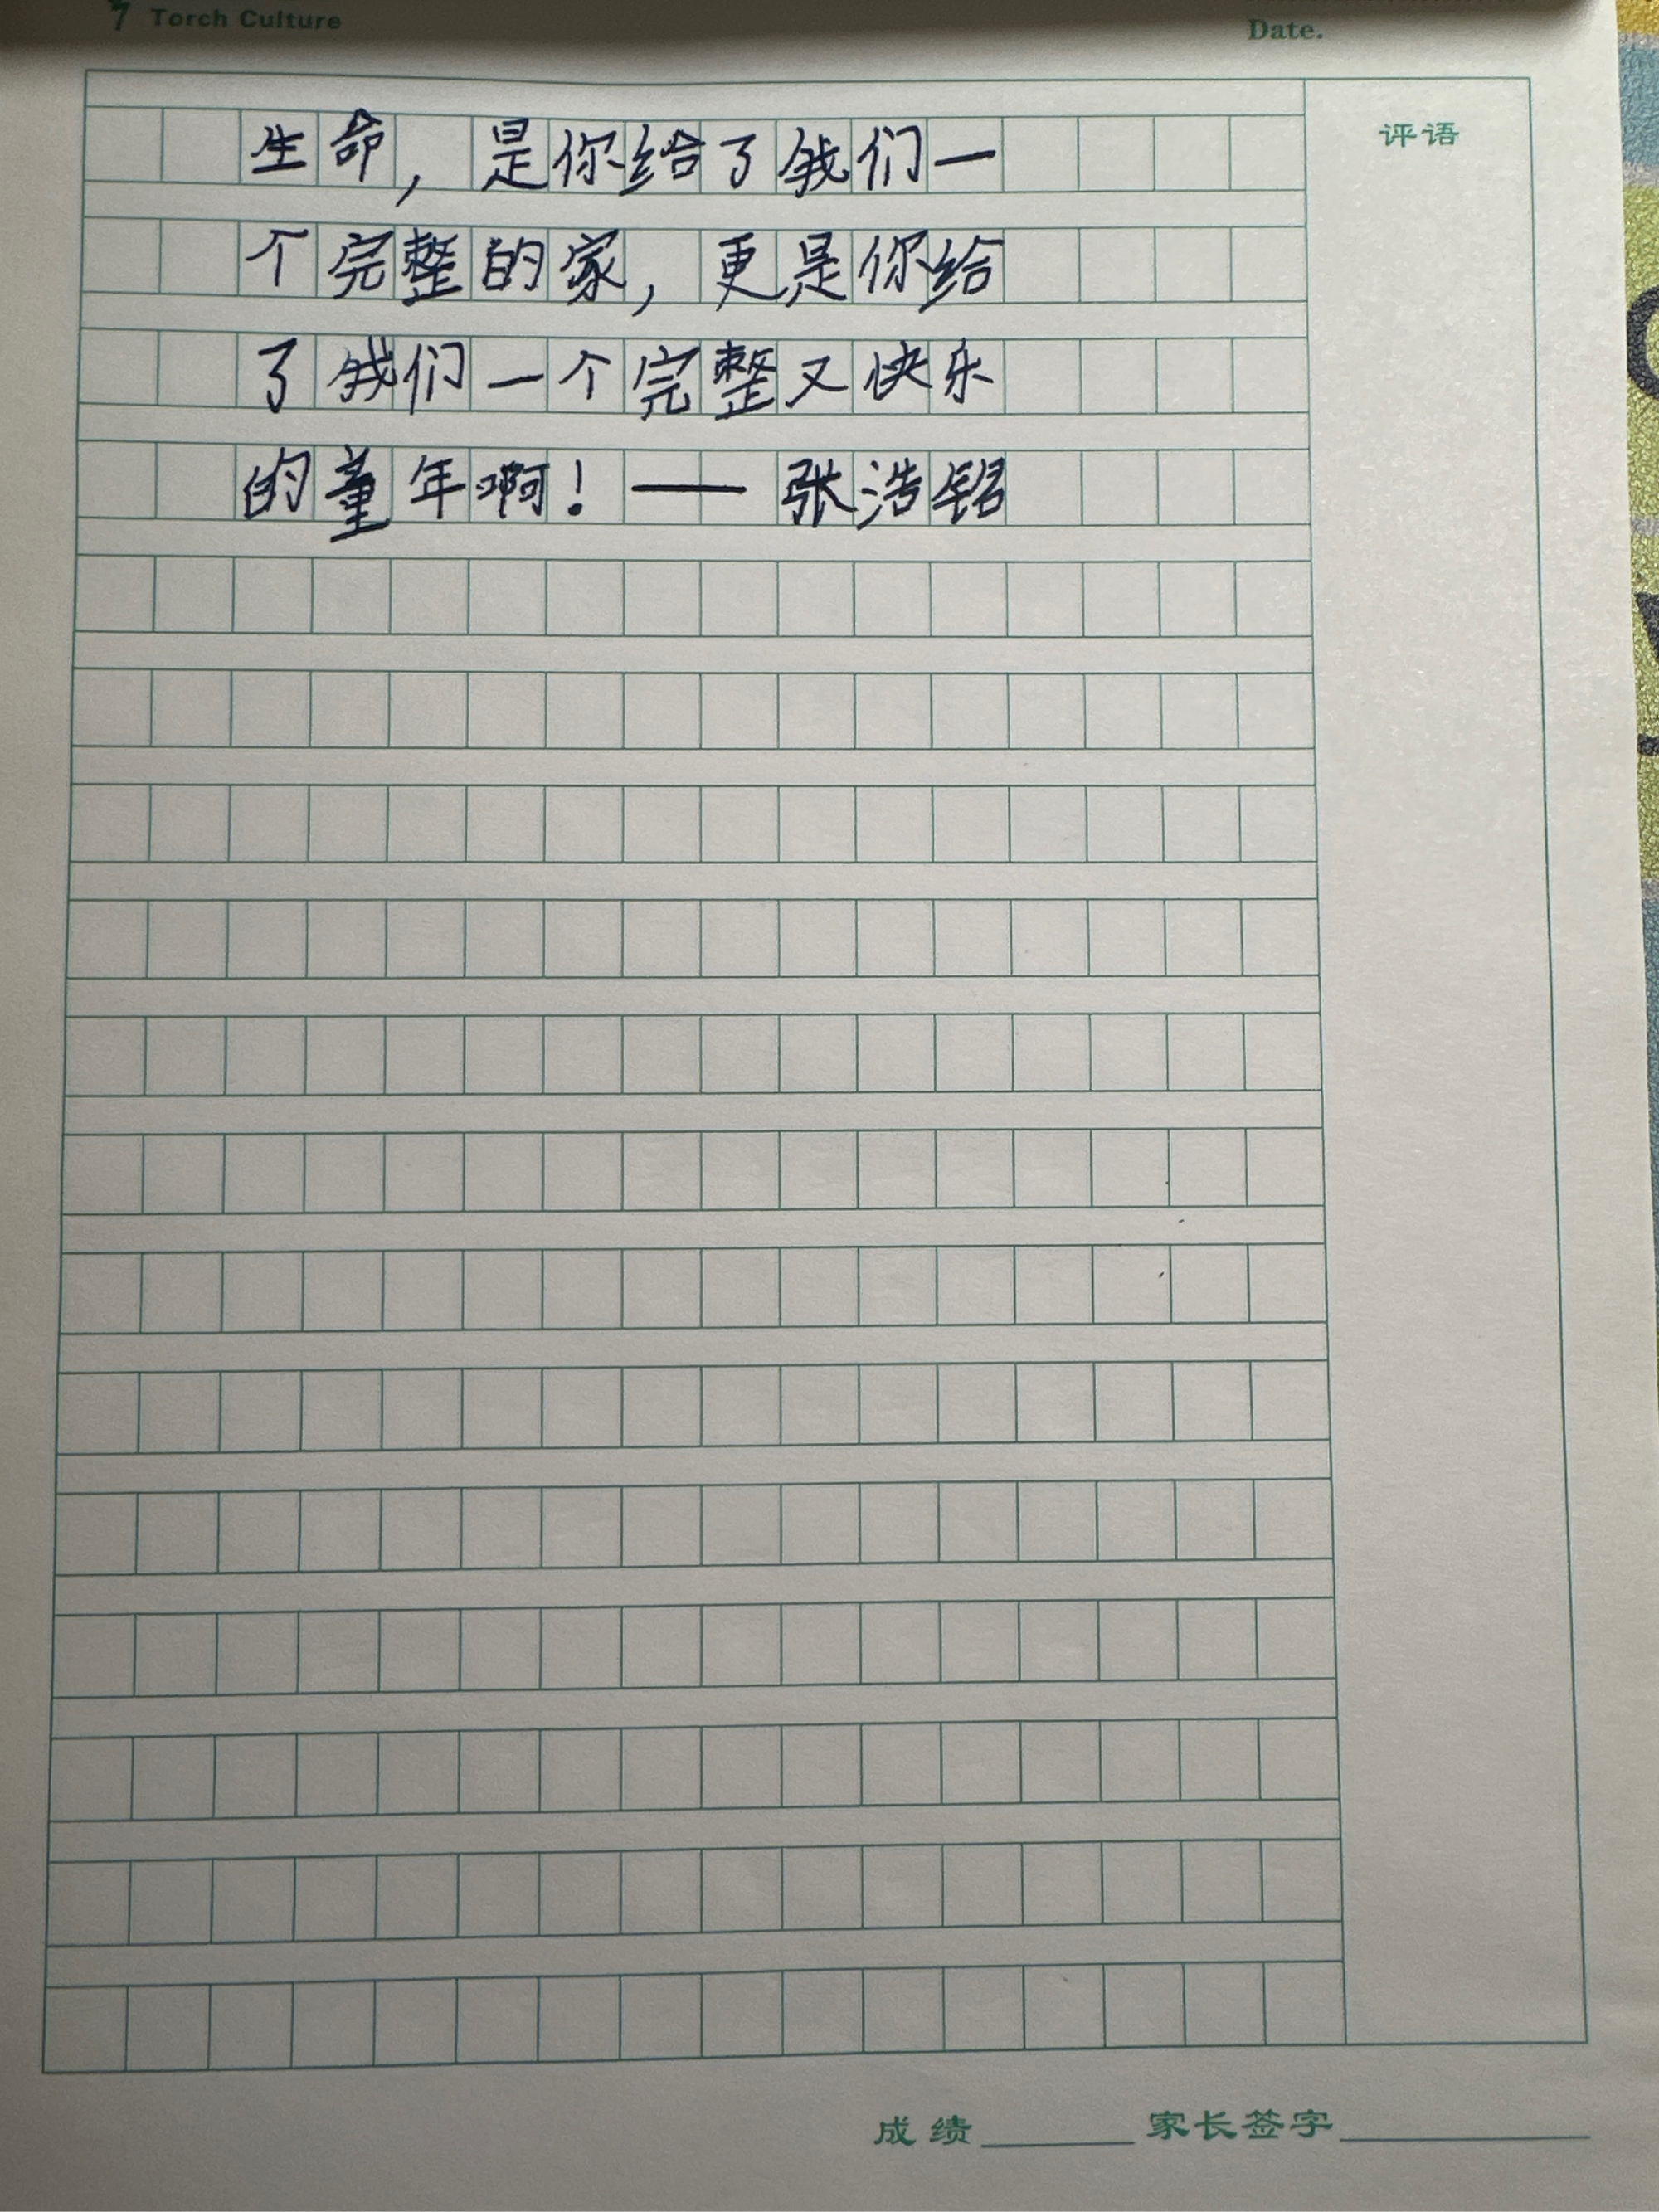 Torch Culture
Date.
评语
生命，是你给了我们一
个完整的家，更是你给
了我们一个完整又快乐
的童年啊！——张浩铭
成绩 家长签字